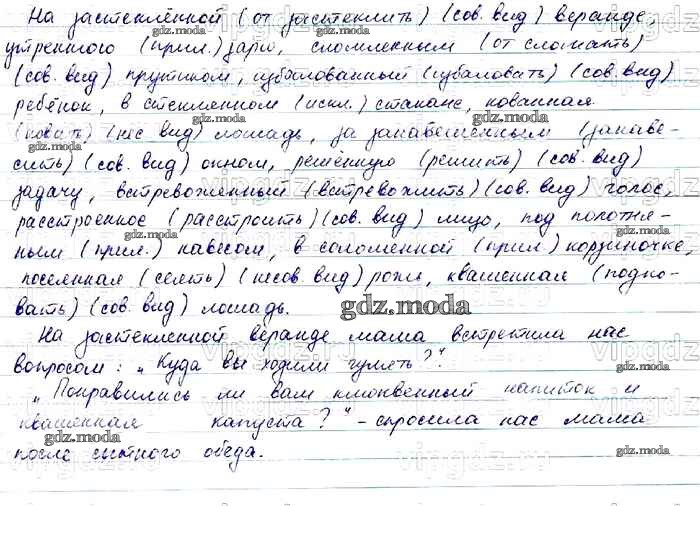 На застеклённой (от застеклить) (сов. вид) веранде,
утреннюю (прил.) зарю, сломленным (от сломать)
(сов. вид) прутиком, избалованный (избаловать) (сов. вид)
ребёнок, в стеклянном (искл.) стакане, кованная
(ковать) (нес вид) лошадь, за занавешенным (занаве-
сить) (сов. вид) окном, решённую (решить) (сов. вид)
задачу, встревоженный (встревожить) (сов. вид) голос,
расстроенное (расстроить) (сов. вид) лицо, под полотня-
ным (прил.) навесом, в соломенной (прил) корзиночке,
посеянная (сеять) (несов. вид) рожь, квашенная (подко-
вать) (сов. вид) лошадь.
На застекленной веранде мама встретила нас
вопросом: „Куда вы ходили гулять?“
„Понравились ли вам клюквенный напиток и
квашенная капуста?“ – спросила нас мама
после сытного обеда.
gdz.moda
vipgdz.ru